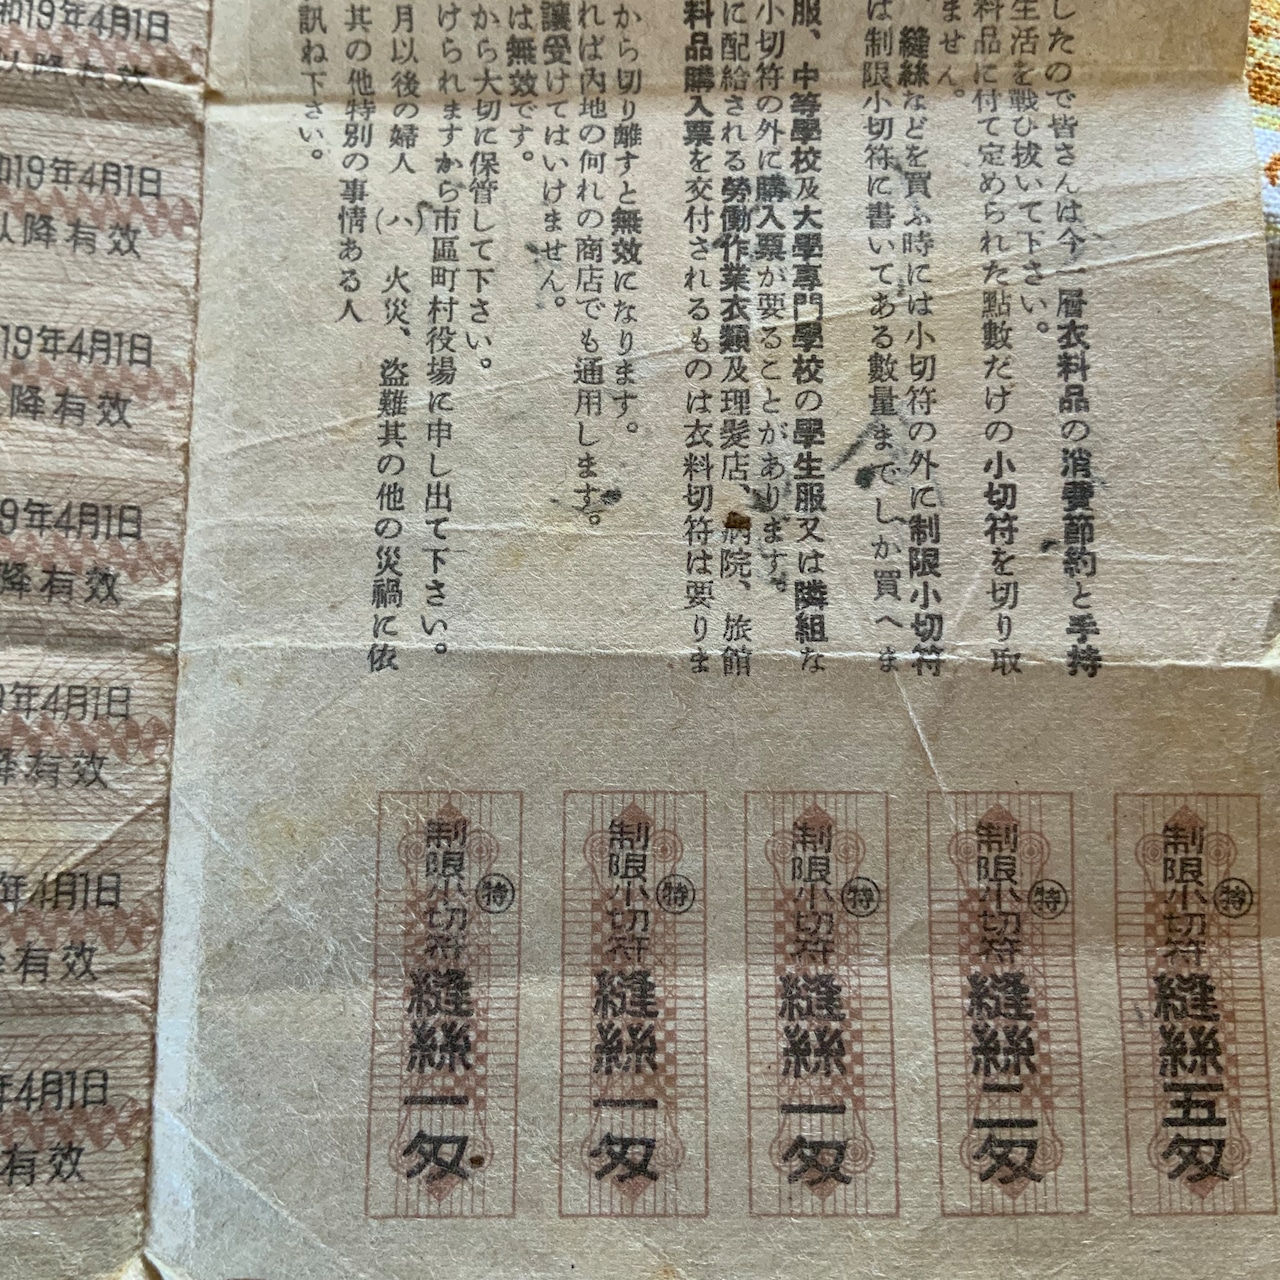 したので皆さんは今一層衣料品の消費節約と手持
生活を戦ひ抜いて下さい。
料品に付て定められた點數だけの小切符を切り取
ません。
、縫絲などを買ふ時には小切符の外に制限小切符
は制限小切符に書いてある數量までしか買へま
服、中等學校及大學專門學校の學生服又は隣組な
小切符の外に購入票が要ることがあります。
に配給される勞働作業衣類及理髮店、病院、旅館
料品購入票を交付されるものは衣料切符は要りま
から切り離すと無效になります。
れば內地の何れの商店でも通用します。
讓受けてはいけません。
は無效です。
から大切に保管して下さい。
けられますから市區町村役場に申し出て下さい。
月以後の婦人 (ハ) 火災、盜難其の他の災禍に依
其の他特別の事情ある人
訊ね下さい。
制限小切符 特 縫絲五匁
制限小切符 特 縫絲二匁
制限小切符 特 縫絲一匁
制限小切符 特 縫絲一匁
制限小切符 特 縫絲一匁
和19年4月1日
以降有效
和19年4月1日
以降有效
19年4月1日
降有效
9年4月1日
降有效
9年4月1日
降有效
年4月1日
有效
年4月1日
有效